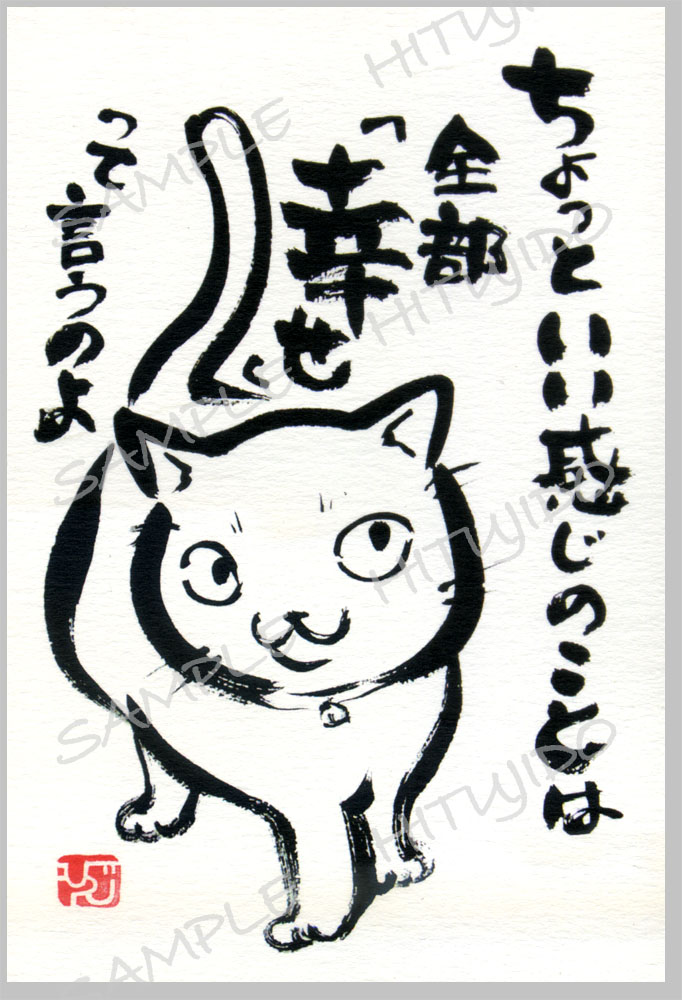 ちょっといい感じのことは
全部
「幸せ」
って言うのよ
SAMPLE HITUJIDO
SAMPLE HITUJIDO
SAMPLE HITUJIDO
SAMPLE HITUJIDO
SAMPLE